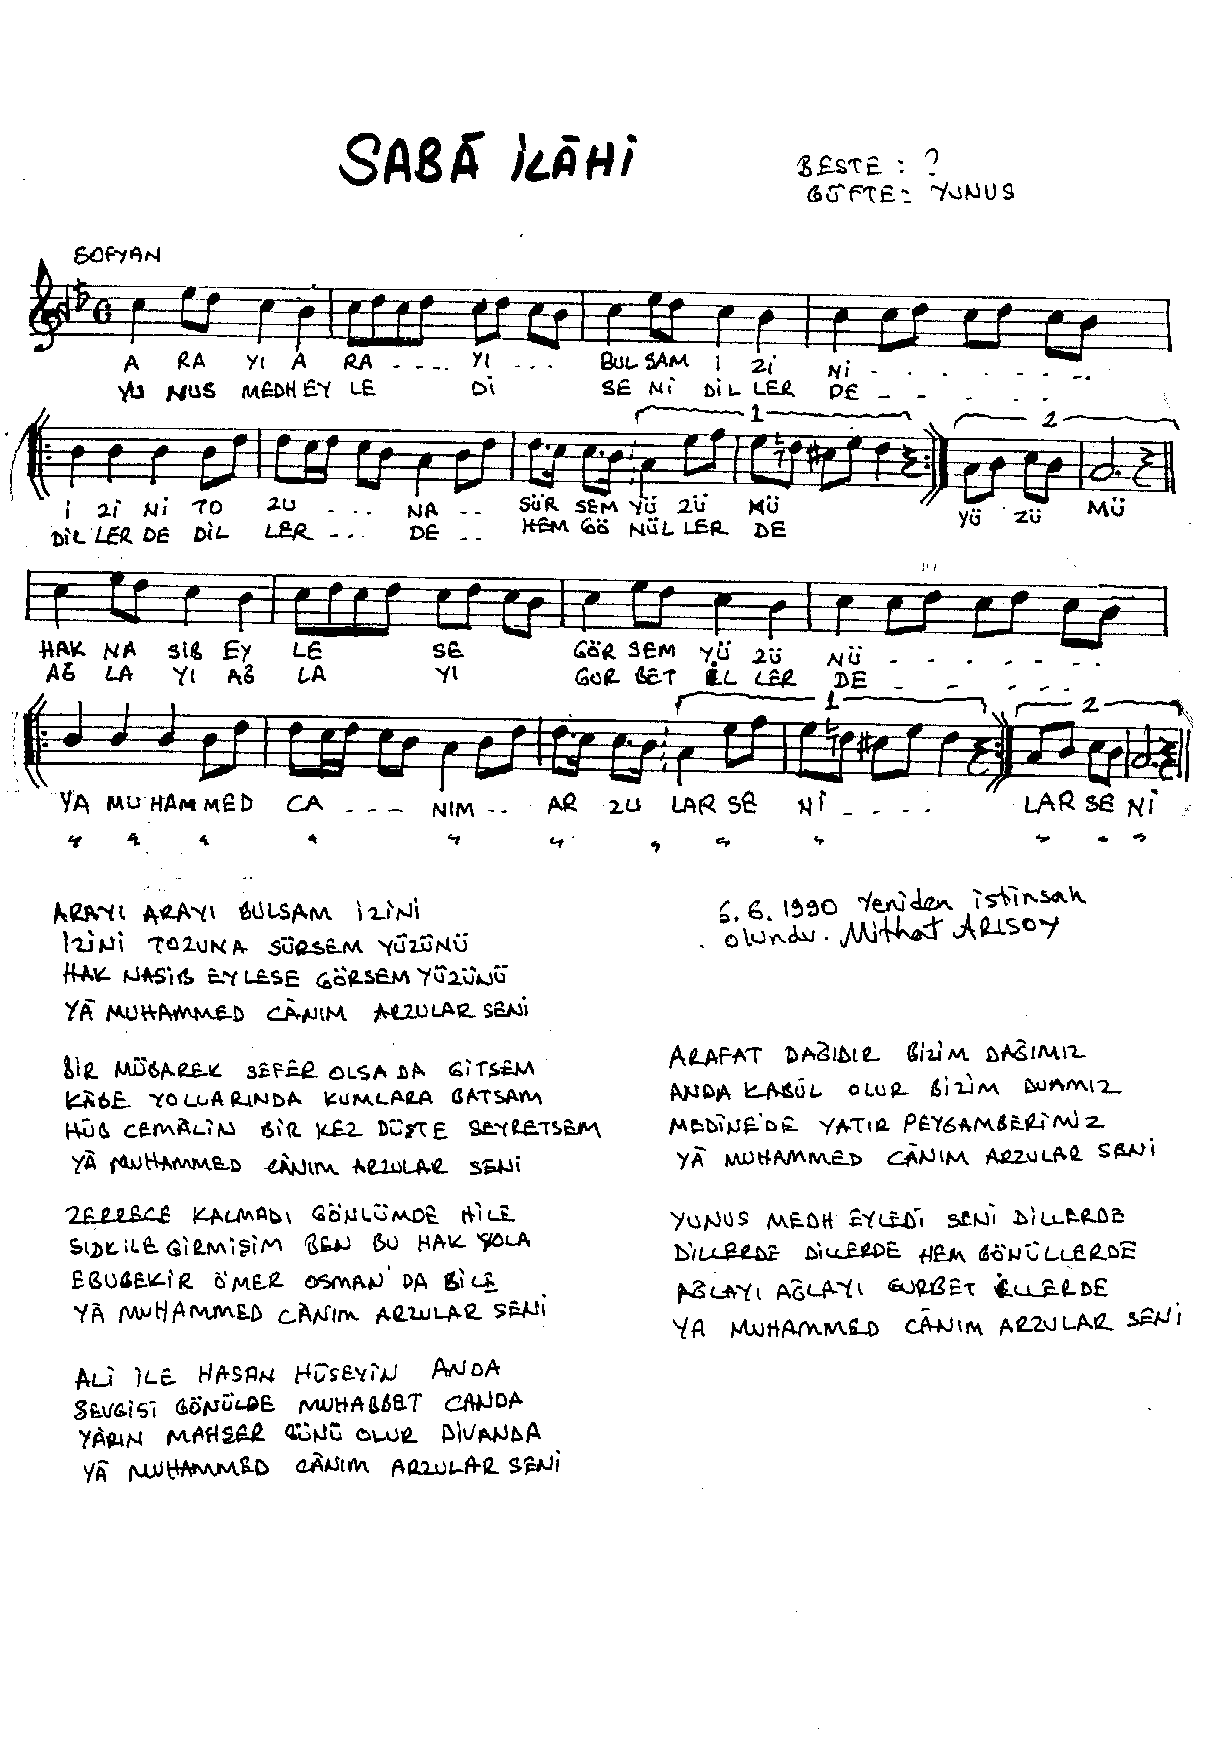 SABÂ İLÂHİ
BESTE : ?
GÜFTE : YUNUS
SOFYAN
A RA YI A RA - - - - YI - - - BUL SAM İ Zİ Nİ - - - - - - -
YU NUS MEDH EY LE Dİ SE Nİ DİL LER DE - - - - - -
1 2
İ Zİ Nİ TO ZU - - - NA - - SÜR SEM YÜ ZÜ MÜ YÜ ZÜ MÜ
DİL LER DE DİL LER - - - DE - - HEM GÖ NÜL LER DE
HAK NA SİB EY LE SE GÖR SEM YÜ ZÜ NÜ - - - - - -
AĞ LA YI AĞ LA YI GUR BET İL LER DE - - - - - -
1 2
YA MUHAMMED CA - - - - NIM - - AR ZU LAR SE Nİ - - - - LAR SE Nİ
" " " " " " " " " " " "
ARAYI ARAYI BULSAM İZİNİ
İZİNİ TOZUNA SÜRSEM YÜZÜNÜ
HAK NASİB EYLESE GÖRSEM YÜZÜNÜ
YÂ MUHAMMED CÂNIM ARZULAR SENİ
BİR MÜBAREK SEFER OLSA DA GİTSEM
KÂBE YOLLARINDA KUMLARA BATSAM
HÛB CEMÂLİN BİR KEZ DÜŞTE SEYRETSEM
YÂ MUHAMMED CÂNIM ARZULAR SENİ
ZERRECE KALMADI GÖNLÜMDE HİLE
SIDK İLE GİRMİŞİM BEN BU HAK YOLA
EBUBEKİR ÖMER OSMAN'DA BİLE
YÂ MUHAMMED CÂNIM ARZULAR SENİ
ALİ İLE HASAN HÜSEYİN ANDA
SEVGİSİ GÖNÜLDE MUHABBET CANDA
YÂRIN MAHŞER GÜNÜ OLUR DİVANDA
YÂ MUHAMMED CÂNIM ARZULAR SENİ
6.6.1990 Yeniden istinsah
olundu. Mithat ARISOY
ARAFAT DAĞIDIR BİZİM DAĞIMIZ
ANDA KABÛL OLUR BİZİM DUAMIZ
MEDİNE'DE YATIR PEYGAMBERİMİZ
YÂ MUHAMMED CÂNIM ARZULAR SENİ
YUNUS MEDH EYLEDİ SENİ DİLLERDE
DİLLERDE DİLLERDE HEM GÖNÜLLERDE
AĞLAYI AĞLAYI GURBET İLLERDE
YA MUHAMMED CÂNIM ARZULAR SENİ